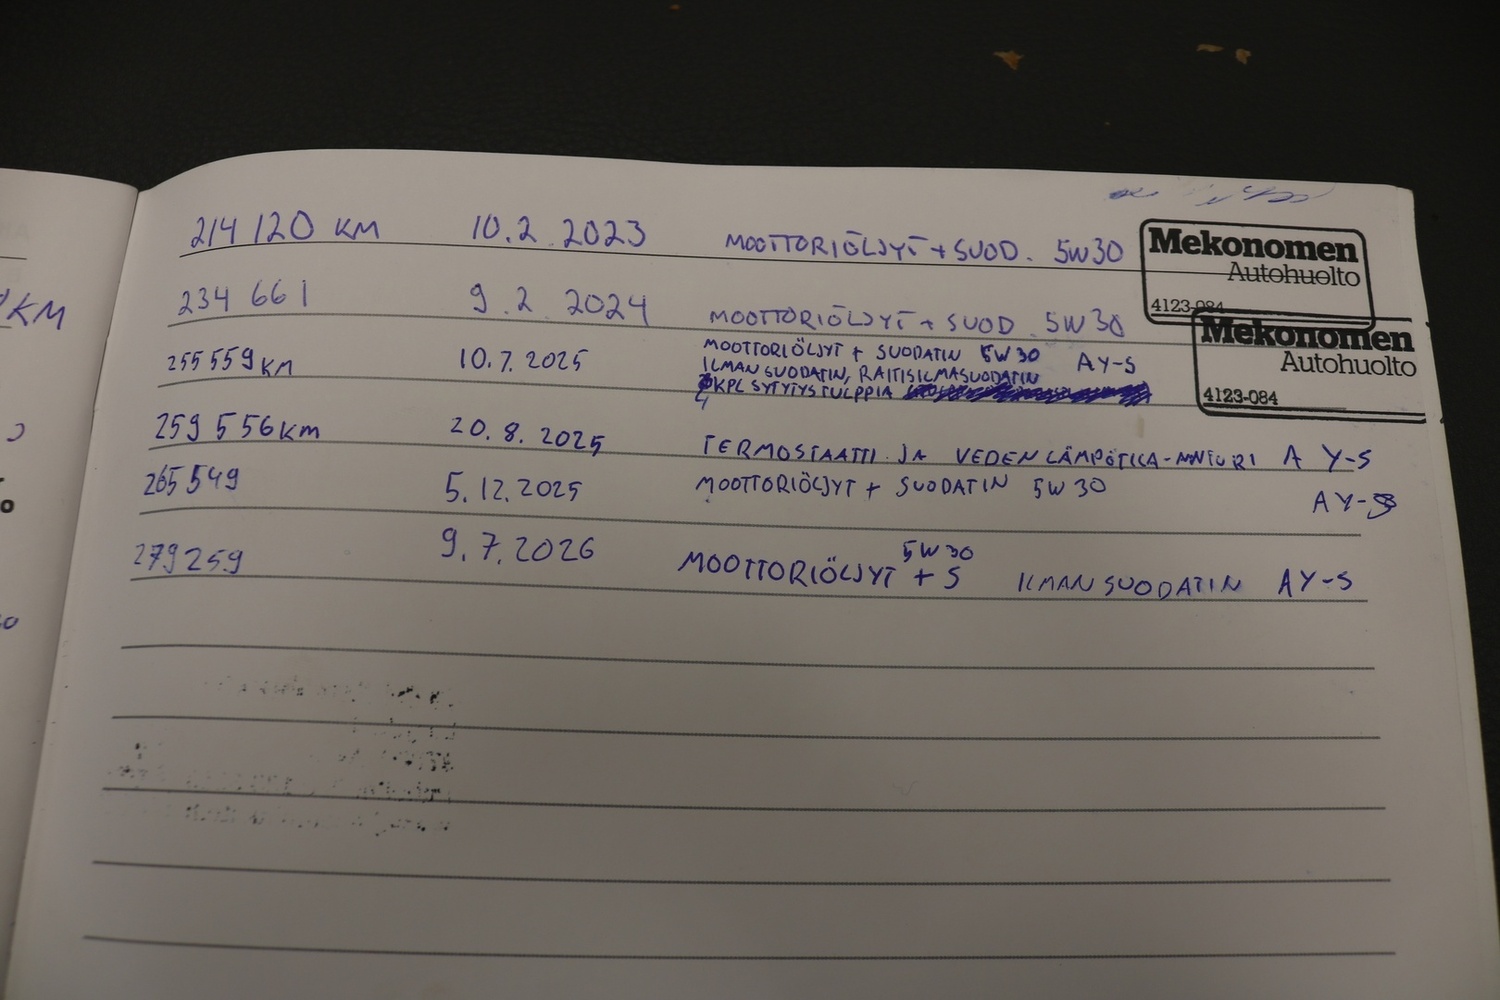 214 120 KM 10.2.2023 MOOTTORIÖLJYT + SUOD. 5W30
Mekonomen
Autohuolto
4123-084
234 661 9.2.2024 MOOTTORIÖLJYT + SUOD 5W30
Mekonomen
Autohuolto
4123-084
255 559 KM 10.7.2025 MOOTTORIÖLJYT + SUODATIN 5W30 AY-S
ILMANSUODATIN, RAITISILMASUODATIN
4 KPL SYTYTYSTULPPIA
259 556 KM 20.8.2025 TERMOSTAATTI JA VEDEN LÄMPÖTILA-ANTURI AY-S
265 549 5.12.2025 MOOTTORIÖLJYT + SUODATIN 5W30 AY-S
279259 9.7.2026 MOOTTORIÖLJYT 5W30 + S ILMANSUODATIN AY-S
KM